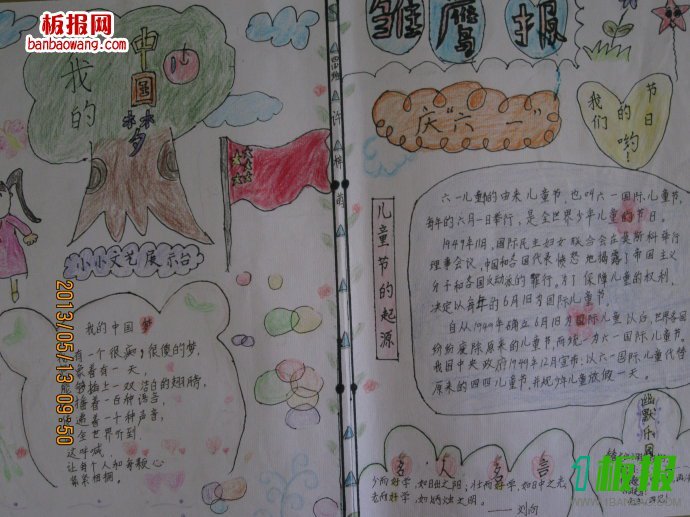 板报网
banbaowang.com
我的
中国
梦
小小文艺展示台
我的中国梦
有一个很痴，很傻的梦，
有一天，
插上一双洁白的翅膀，
着一百种语言，
着一千种声音，
全世界听到
这呼喊，
让每个人和着歌心
紧紧相拥。
2013/05/13 09:50
雏鹰报
庆“六一”
我们的节日哟！
儿童节的起源
六一儿童节的由来儿童节，也叫六一国际儿童节，
每年的六月一日举行，是全世界少年儿童的节日。
1949年11月，国际民主妇女联合会在莫斯科举行
理事会议，中国和各国代表愤怒地揭露了帝国主义
分子和各国反动派的罪行。为了保障儿童的权利，
决定以每年的6月1日为国际儿童节。
自从1949年确立6月1日为国际儿童节以后，世界各国
纷纷废除原来的儿童节而统一为六一国际儿童节。
我国中央政府1949年12月宣布：以六一国际儿童代替
原来的四四儿童节，并规少年儿童放假一天。
名人名言
少而好学，如日出之阳；壮而好学，如日中之光；
老而好学，如炳烛之明。
——刘向
幽默乐园
1板报